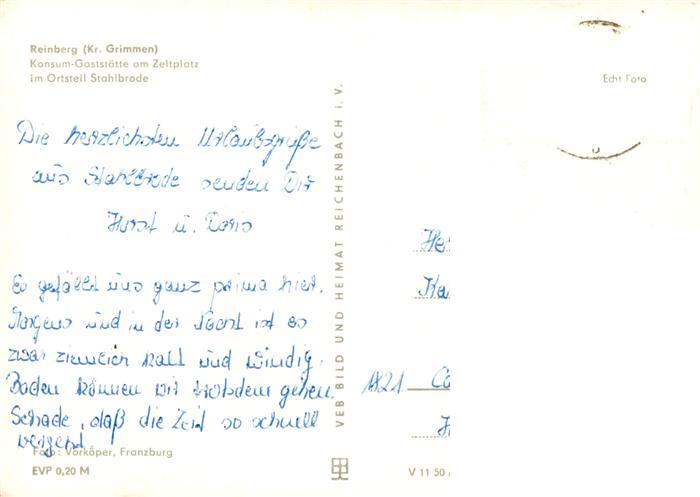 Reinberg (Kr. Grimmen)
Konsum-Gaststätte am Zeltplatz
im Ortsteil Stahlbrode
Echt Foto
Die herzlichsten Urlaubsgrüße
aus Stahlbrode senden Dir
Horst u. Doris
Es gefällt uns ganz prima hier.
Morgens und in der Nacht ist es
zwar ziemlich kalt und windig.
Baden können wir trotzdem gehen.
Schade, daß die Zeit so schnell
vergeht.
Foto: Vorköper, Franzburg
EVP 0,20 M
VEB BILD UND HEIMAT REICHENBACH I. V.
He
Ka
1821 Co
H
V 11 50